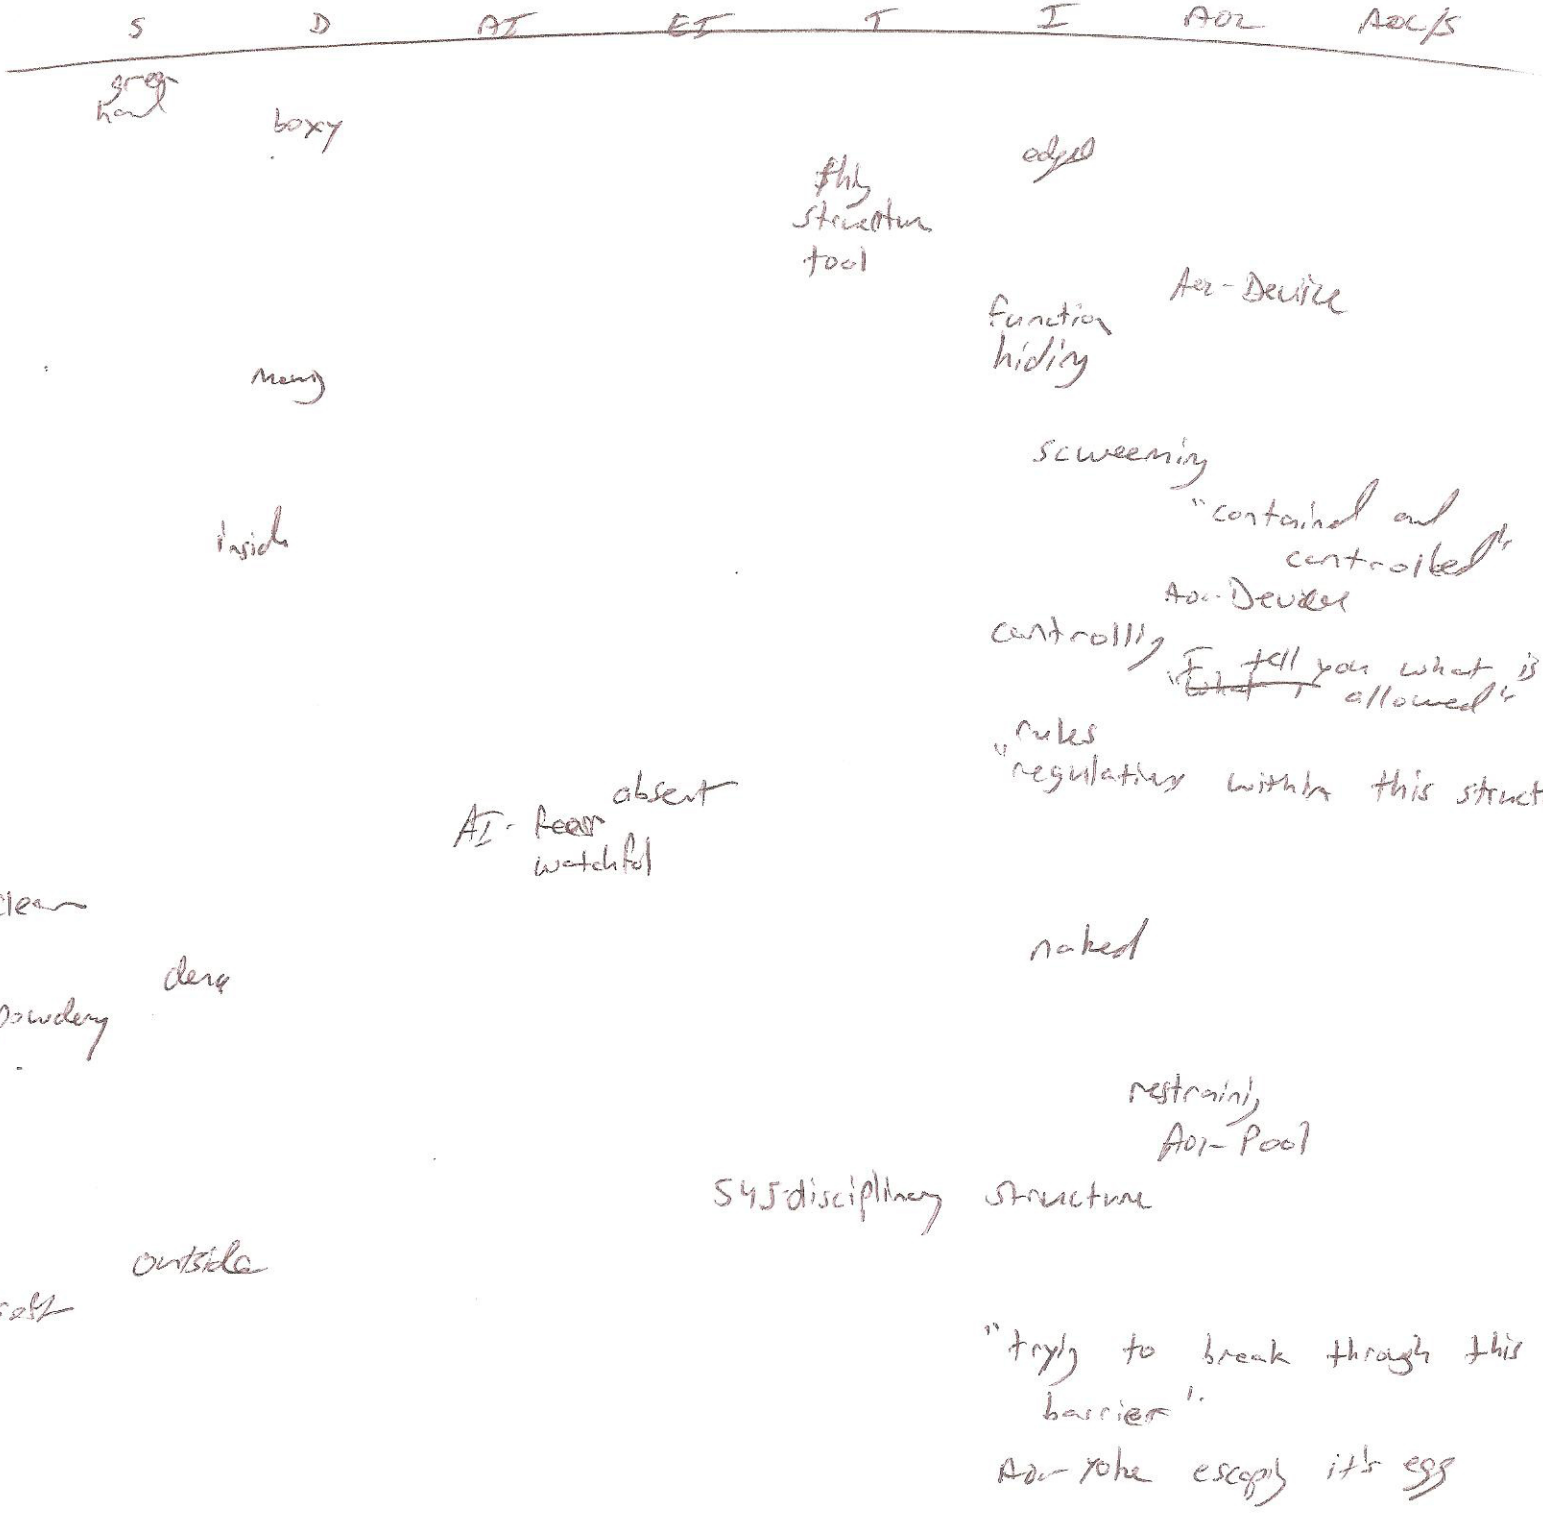 S D AI EI T I AOL AOL/S
grey
hard
boxy
edged
thing
structure
tool
AOL-Device
function
hiding
many
scweening
"contained and
controlled"
inside
AOL-Device
controlling
"I tell you what is
allowed"
rules
"regulations within this struct
absent
AI-
watchful
clean
naked
powdery
restraining
AOL-Pool
disciplinary structure
outside
"trying to break through this
barrier".
AOL-Yoke escaping it's egg